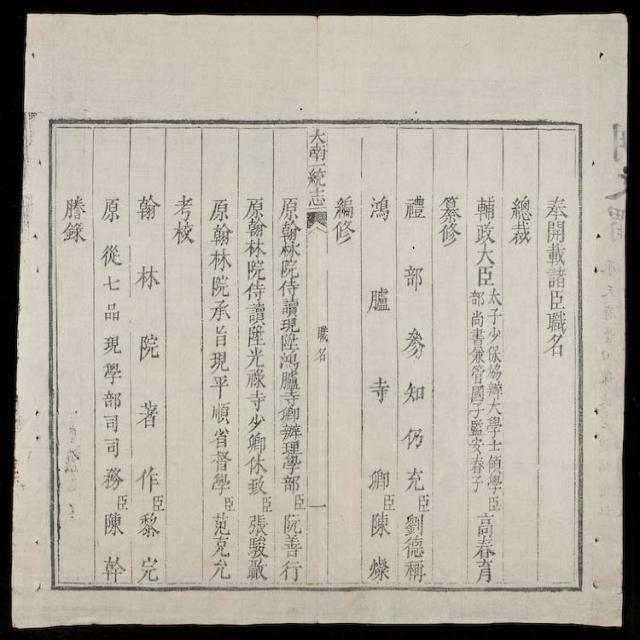 奉開載諸臣職名
總裁
輔政大臣太子少保協辦大學士領學
部尚書兼管國子監安春子臣高春育
纂修
禮部參知仍充臣劉德稱
鴻臚寺卿臣陳燦
編修
大南一統志
職名
一
原翰林院侍讀現陞鴻臚寺卿辦理學部臣阮善行
原翰林院侍讀陞光祿寺少卿休致臣張駿
原翰林院承旨現平順省督學臣范克允
考校
翰林院著作臣黎完
原從七品現學部司司務臣陳幹
謄錄